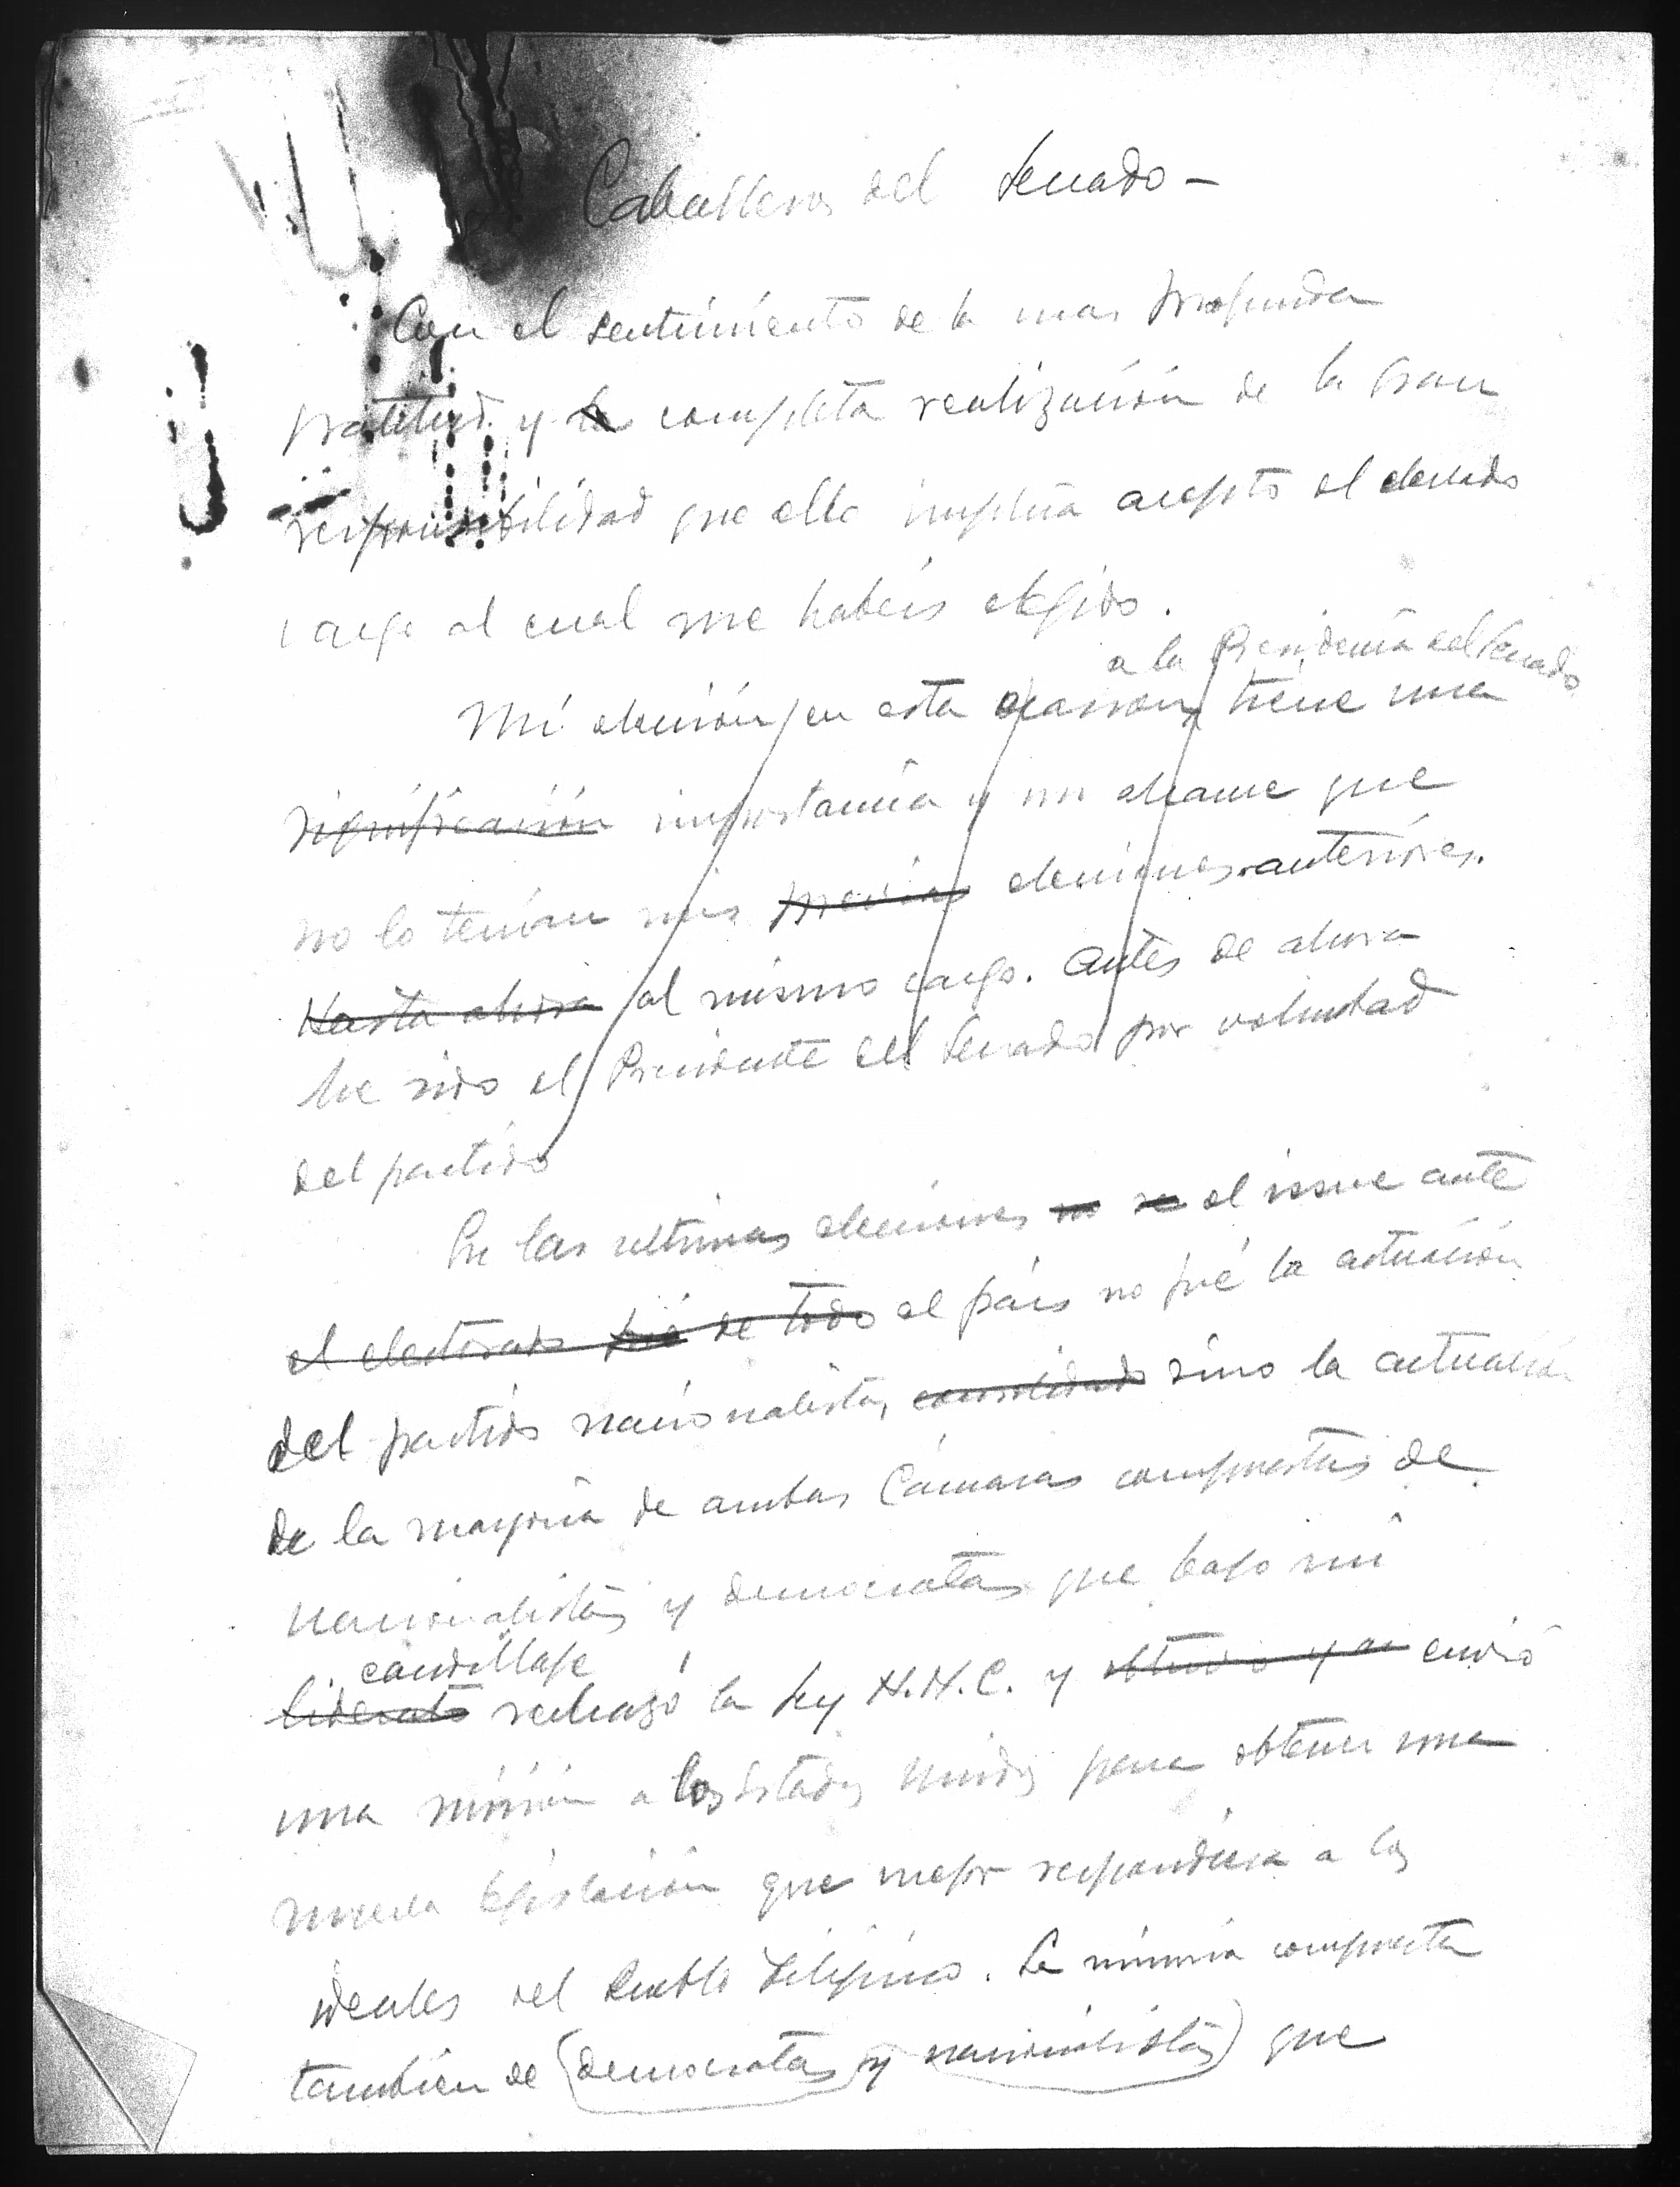 Caballeros del Senado -
Con el sentimiento de la mas profunda
gratitud y la completa realización de la gran
responsabilidad que ello implica acepto el elevado
cargo al cual me habeis elegido.
a la Presidencia del Senado
Mi elección en esta ocasion, tiene una
significación importancia y un alcance que
no lo tenían mis previas elecciones anteriores.
Hasta ahora al mismo cargo. Antes de ahora
he sido el Presidente del Senado por voluntad
del partido
En las ultimas elecciones no se el issue ante
el electorado fué de todo el país no fué la actuación
del partido nacionalista, consolidado sino la actuación
de la mayoria de ambas Cámaras compuestas de
nacionalistas y democratas que bajo mi
caudillaje
liderato rechazó la ley H.H.C. y obtuvo y a envió
una misión a los Estados Unidos para obtener una
nueva legislación que mejor respondiera a los
ideales del Pueblo Filipino. La minoria compuesta
tambien de (democratas y nacionalistas) que